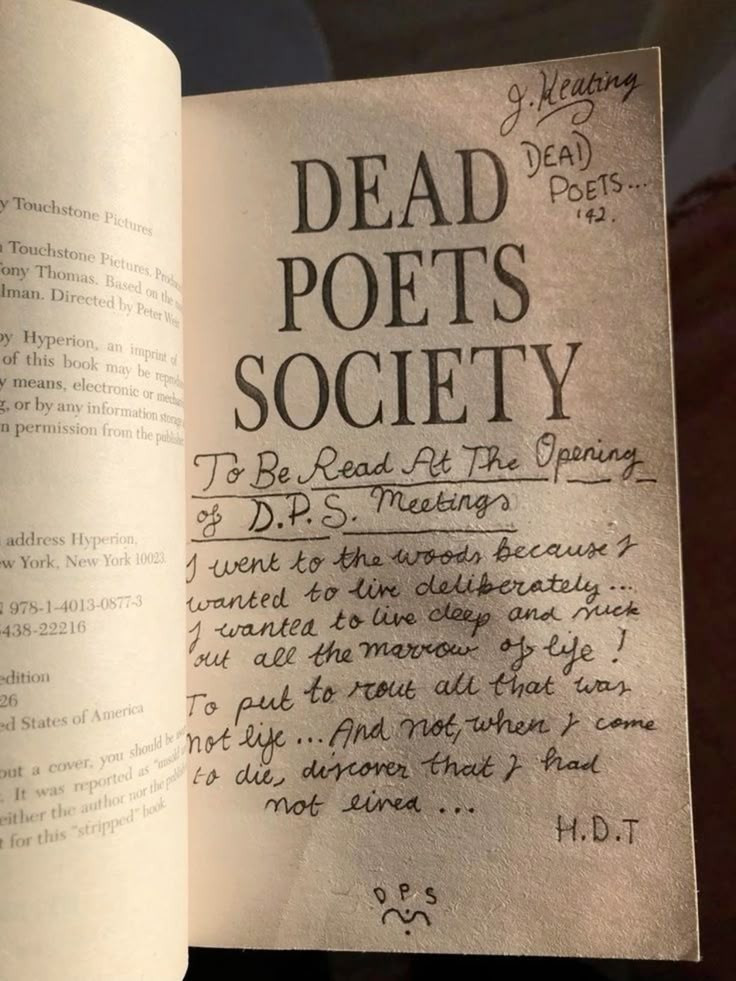 y Touchstone Pictures
Touchstone Pictures. Produ
ony Thomas. Based on the
lman. Directed by Peter Weir
by Hyperion, an imprint of
of this book may be reprodu
y means, electronic or mechan
g, or by any information storage
n permission from the publisher
address Hyperion,
w York, New York 10023.
978-1-4013-0877-3
438-22216
edition
26
ed States of America
out a cover, you should be
. It was reported as "unsold
either the author nor the publis
t for this "stripped" book.
J. Keating
DEAD
POETS...
'42.
DEAD
POETS
SOCIETY
To Be Read At The Opening
of D.P.S. Meetings
I went to the woods because I
wanted to live deliberately...
I wanted to live deep and suck
out all the marrow of life!
To put to rout all that was
not life... And not, when I come
to die, discover that I had
not lived...
H.D.T
D P S